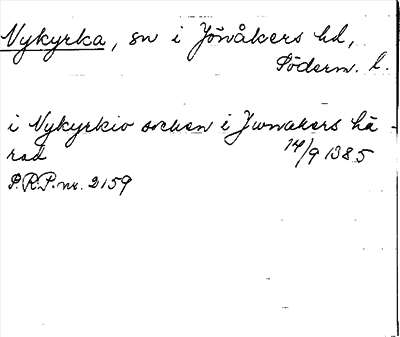 Nykyrka, sn i Jönåkers hd,
Söderm. l.
i Nykyrkio sochen i Junakers hä-
rad 14/9 1385
P.R.P. nr. 2159